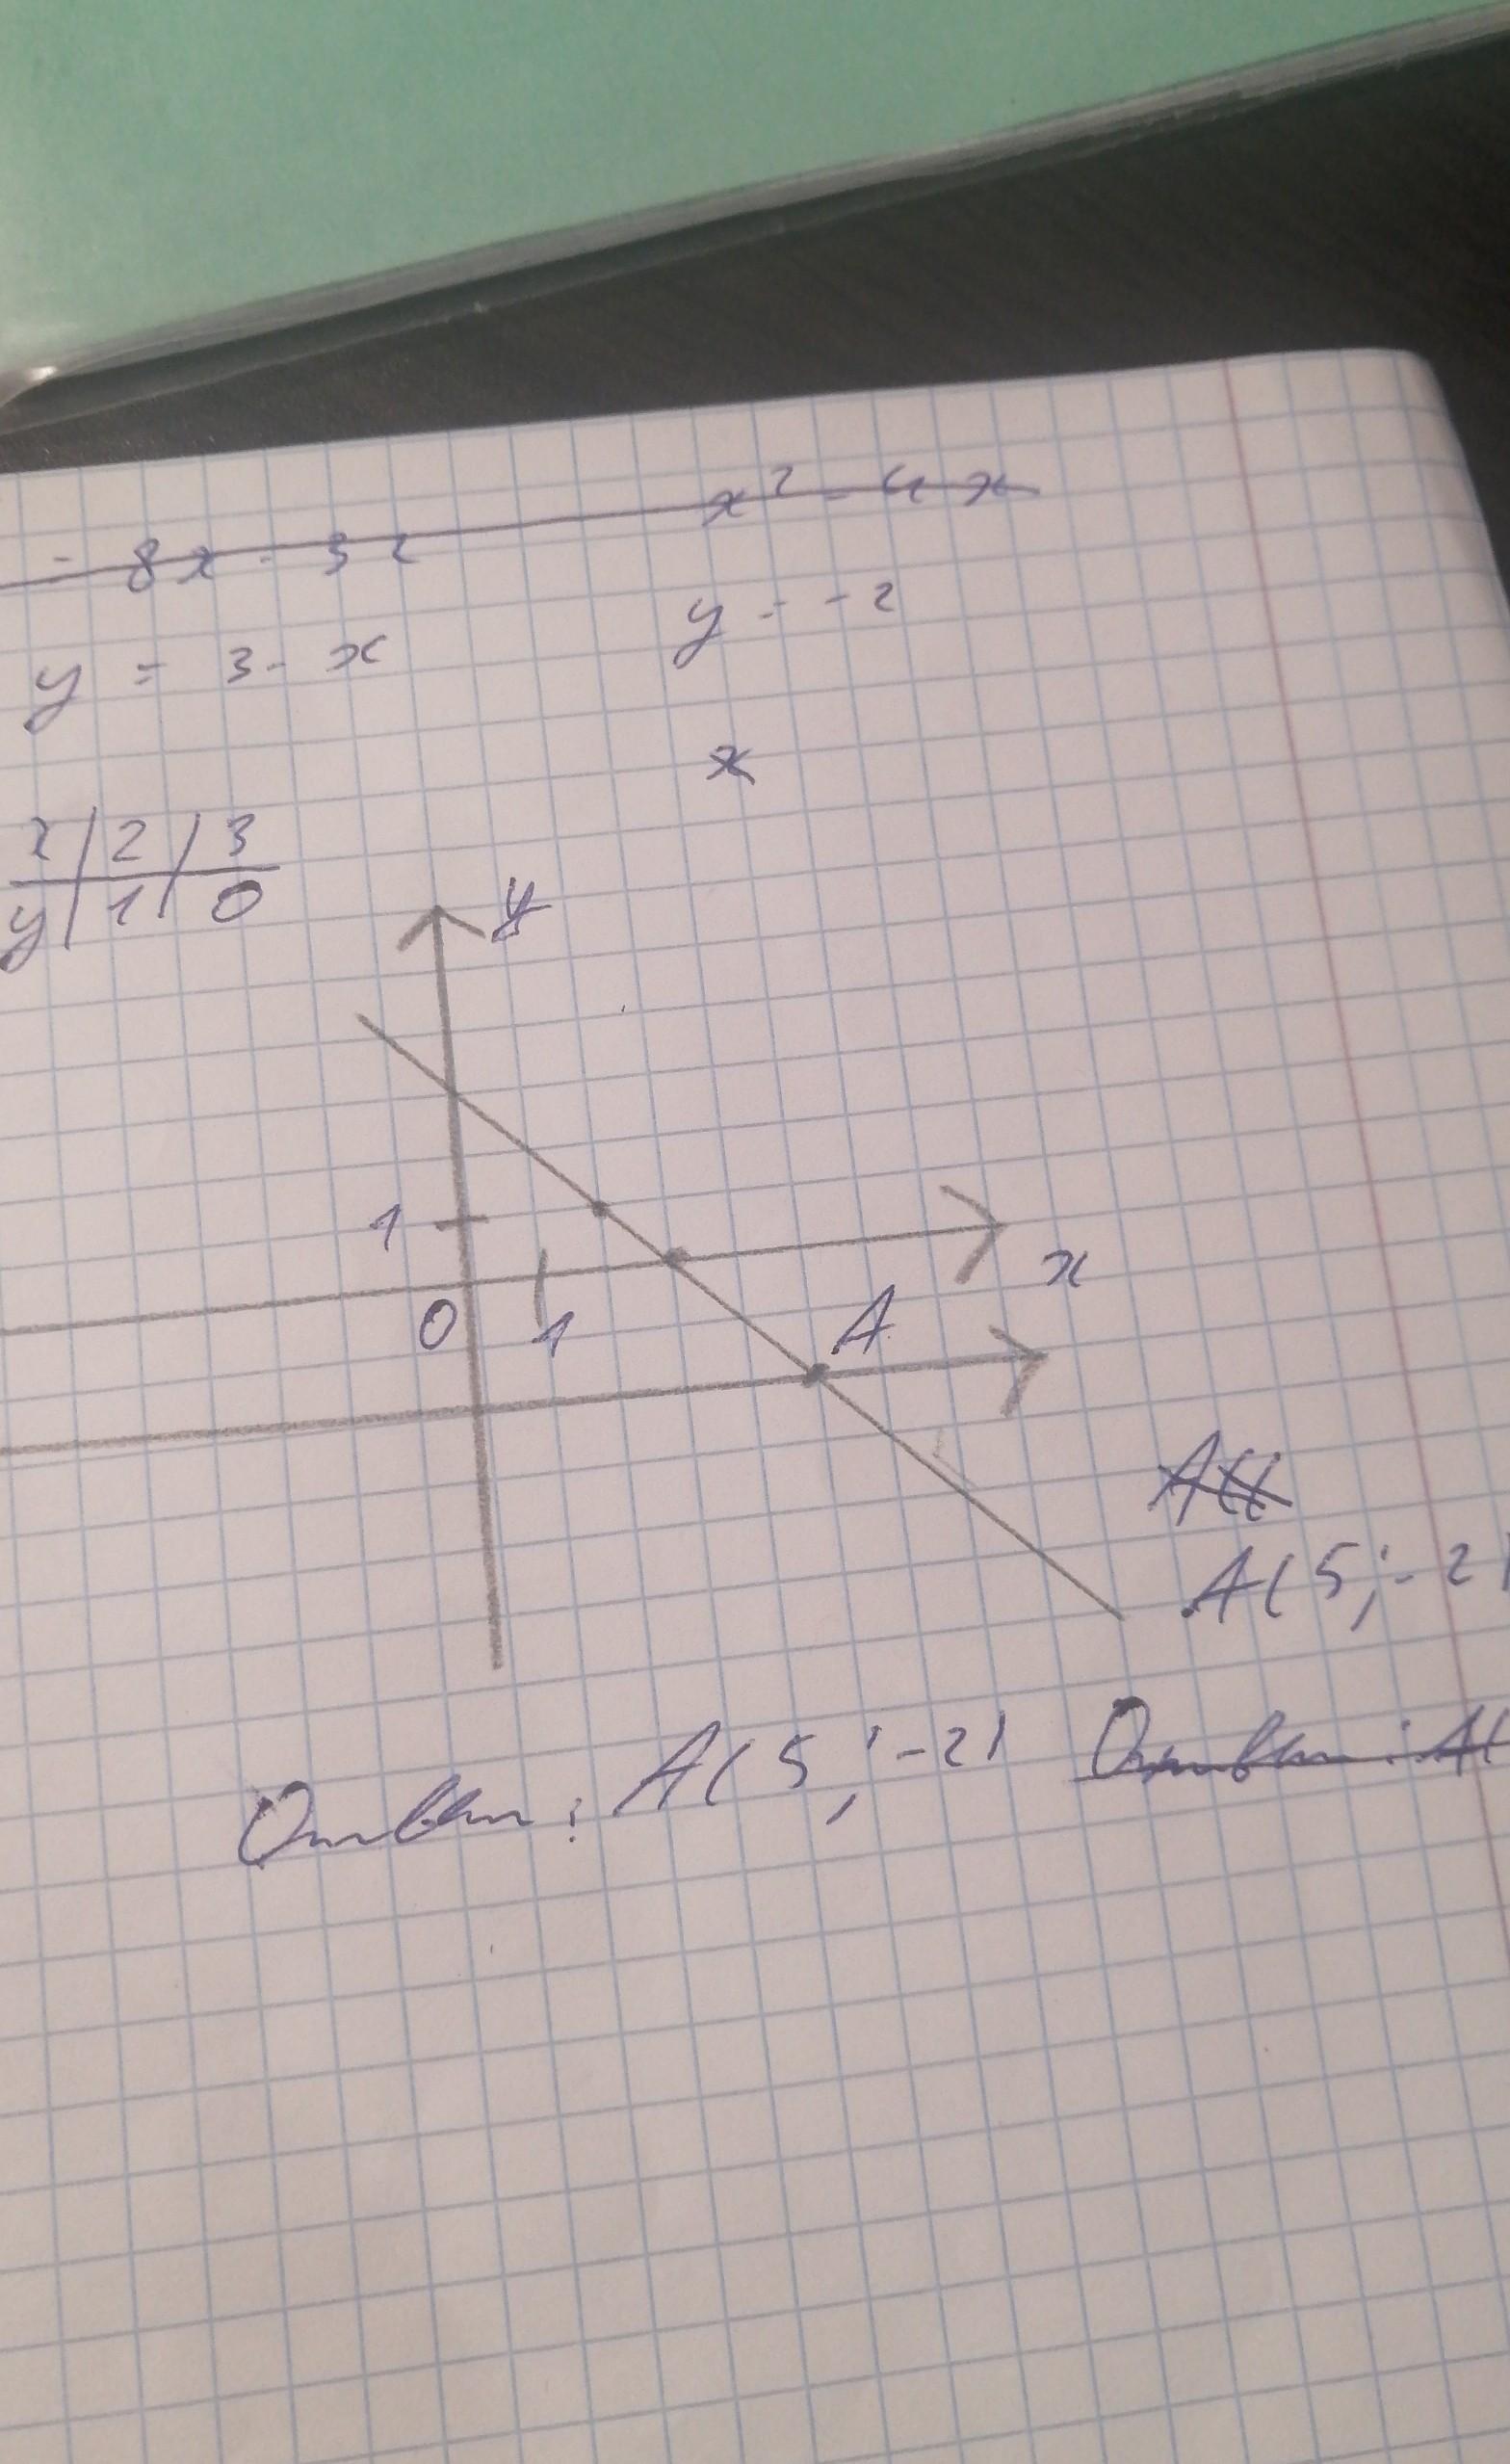 = 8x - 32
x² - 4x
y = 3 - x
y = -2
x
x | 2 | 3
y | 1 | 0
y
1
x
0
1
A
A((
A(5; -2)
Ответ: A(5; -2) Ответ: A(